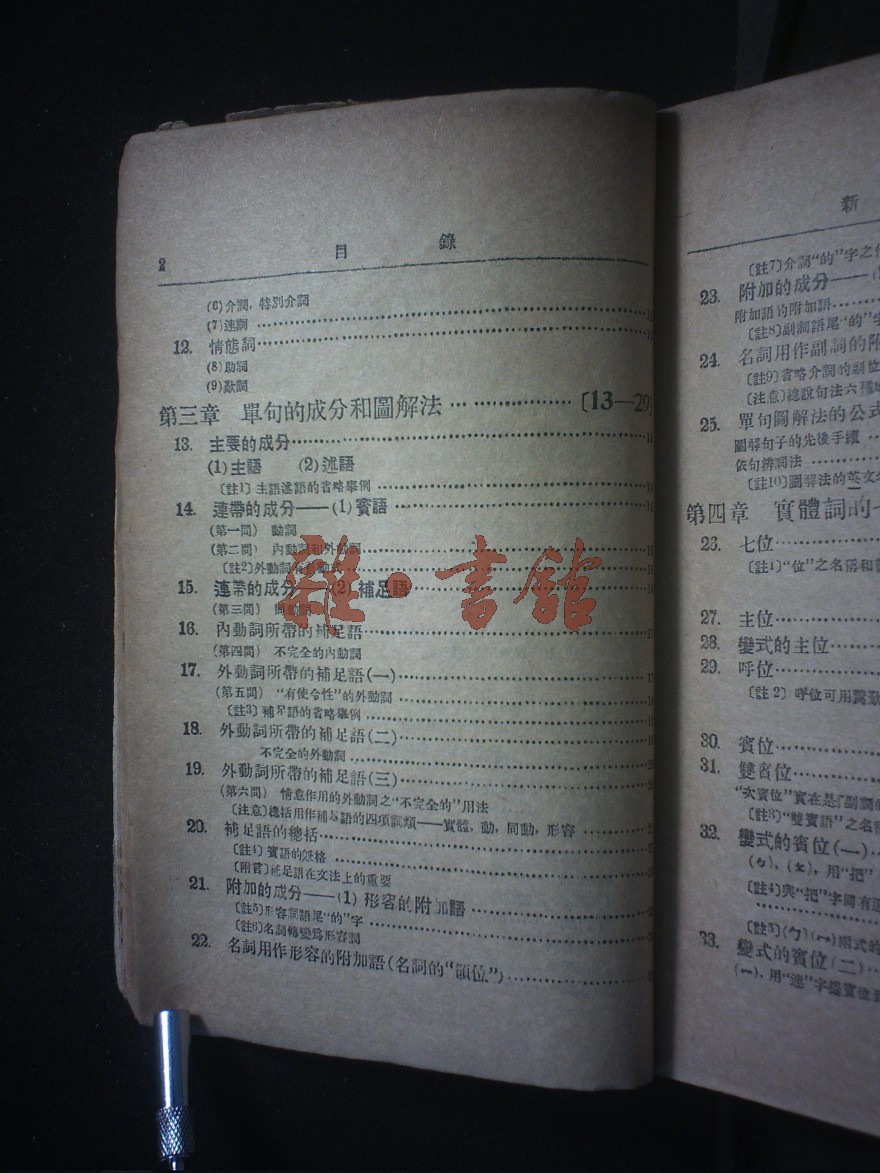 2 目 錄
(6)介詞, 特別介詞
(7)連詞
12. 情態詞
(8)助詞
(9)歎詞
第三章 單句的成分和圖解法 [13—29]
13. 主要的成分
(1)主語 (2)述語
〔註1〕主語述語的省略舉例
14. 連帶的成分——(1)賓語
(第一問) 動詞
(第二問) 內動詞和外動詞
〔註2〕外動詞
15. 連帶的成分——(2)補足語
(第三問) 同動詞
16. 內動詞所帶的補足語
(第四問) 不完全的內動詞
17. 外動詞所帶的補足語(一)
(第五問) “有使令性”的外動詞
〔註3〕補足語的省略舉例
18. 外動詞所帶的補足語(二)
不完全的外動詞
19. 外動詞所帶的補足語(三)
(第六問) 情意作用的外動詞之“不完全的”用法
〔注意〕總括用作補足語的四項詞類——實體, 動, 同動, 形容
20. 補足語的總括
〔註4〕賓語的
〔附言〕補足語在文法上的重要
21. 附加的成分——(1)形容的附加語
〔註5〕形容詞語尾“的”字
〔註6〕名詞轉變為形容詞
22. 名詞用作形容的附加語(名詞的“領位”)
雜·書館
新
〔註7〕介詞“的”字之
23. 附加的成分——
附加語的附加語
〔註8〕副詞語尾“的”字
24. 名詞用作副詞的附
〔註9〕省略介詞的副位
〔注意〕總說句法六種
25. 單句圖解法的公式
圖解句子的先後手續
依句辨詞法
〔註10〕圖解法的英文
第四章 實體詞的七
26. 七位
〔註1〕“位”之名稱和
27. 主位
28. 變式的主位
29. 呼位
〔註2〕呼位可用驚歎
30. 賓位
31. 雙賓位
“次賓位”實在是「副詞的
〔註3〕“雙賓語”之名
32. 變式的賓位(一)
(ㄅ), (ㄆ), 用“把”
〔註4〕與“把”字同有
〔註5〕(ㄅ)(一)兩式的
33. 變式的賓位(二)
(一), 用“連”字提賓位